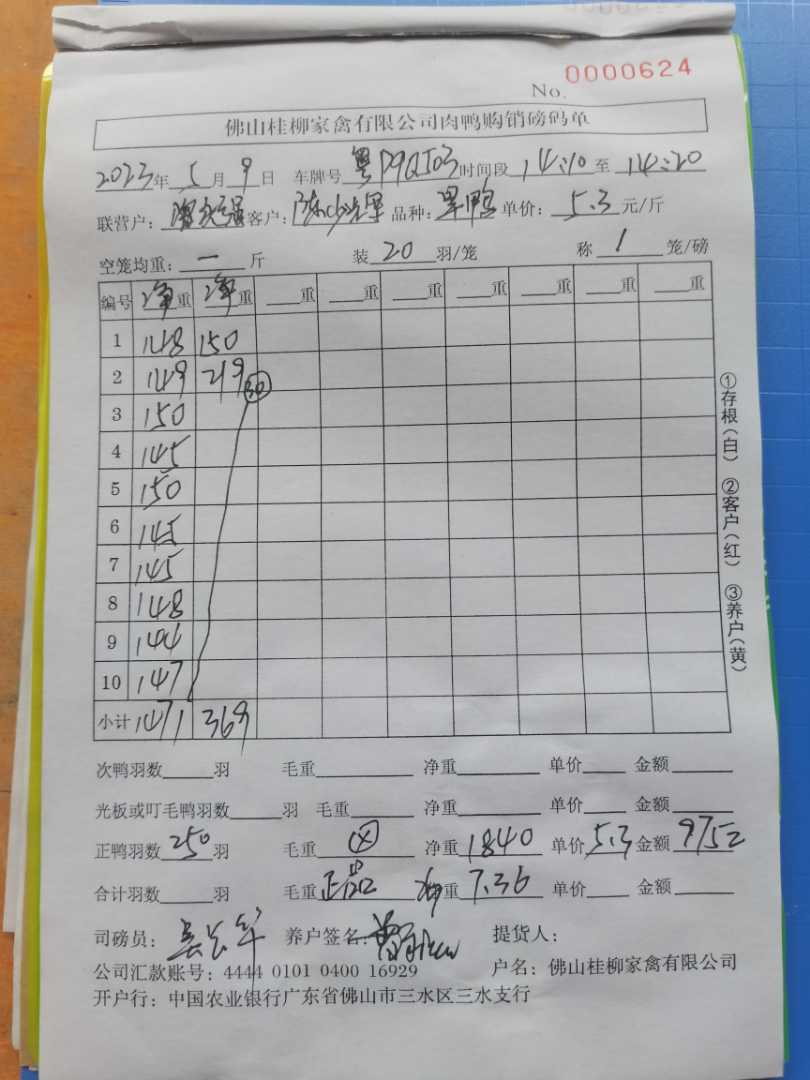 No. 0000624
佛山桂柳家禽有限公司肉鸭购销磅码单
2023年 5月 9日 车牌号 粤 时间段 14:10 至 14:20
联营户: 客户: 品种: 单价: 5.3 元/斤
空笼均重: 一 斤 装 20 羽/笼 称 1 笼/磅
编号 净重 净重 重 重 重 重 重 重 重
1 148 150
2 149 219 30
3 150
4 145
5 150
6 145
7 145
8 148
9 144
10 147
小计 1471 369
①存根(白) ②客户(红) ③养户(黄)
次鸭羽数 羽 毛重 净重 单价 金额
光板或叮毛鸭羽数 羽 毛重 净重 单价 金额
正鸭羽数 250 羽 毛重 净重 1840 单价 5.3 金额 9752
合计羽数 羽 毛重 正品 重 7.36 单价 金额
司磅员: 养户签名: 提货人:
公司汇款账号: 4444 0101 0400 16929 户名: 佛山桂柳家禽有限公司
开户行: 中国农业银行广东省佛山市三水区三水支行